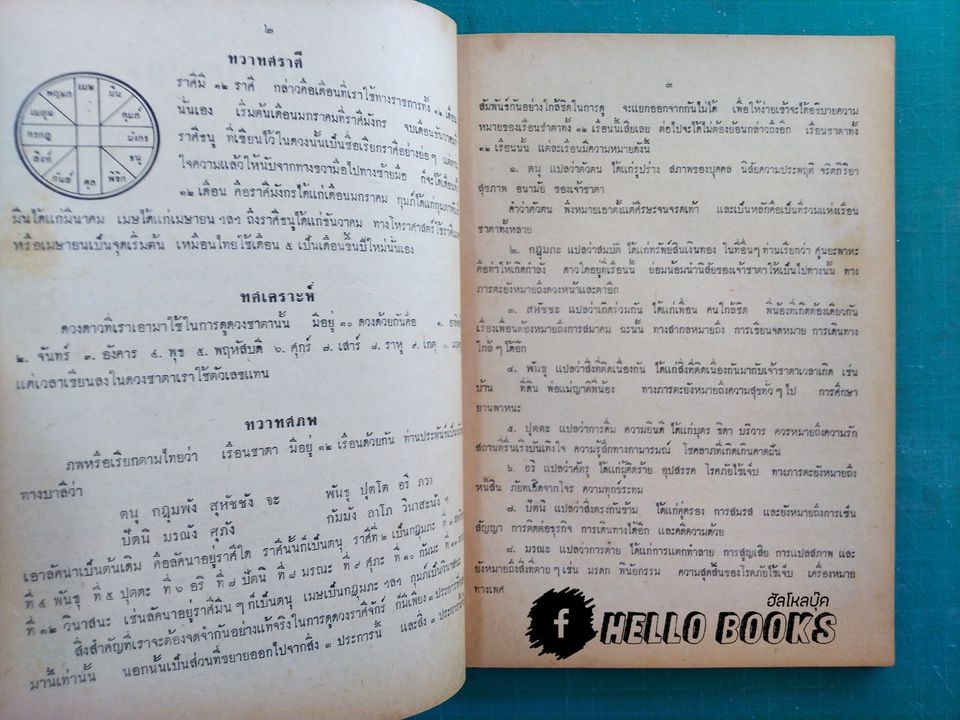 ๒
ทวาทศราศี
พฤษภ เมษ มีน
เมถุน กุมภ์
กรกฎ มังกร
สิงห์ ธนู
กันย์ ตุล พิจิก
ราศีมี ๑๒ ราศี กล่าวคือเดือนที่เราใช้ทางราชการทั้ง ๑๒ เดือน
นั่นเอง เริ่มต้นเดือนมกราคมที่ราศีมังกร จบเดือนธันวาคมที่
ราศีธนู ที่เขียนไว้ในดวงนั้นเป็นชื่อเรียกราศีอย่างย่อ ๆ
ใจความแล้วให้นับจากทางขวามือไปทางซ้ายมือ ก็จะได้เดือน
๑๒ เดือน คือราศีมังกรได้แก่เดือนมกราคม กุมภ์ได้แก่กุมภาพันธ์
มีนได้แก่มีนาคม เมษได้แก่เมษายน ฯลฯ ถึงราศีธนูได้แก่ธันวาคม ทางโหราศาสตร์ใช้ราศีเมษ
หรือเมษายนเป็นจุดเริ่มต้น เหมือนไทยใช้เดือน ๕ เป็นเดือนขึ้นปีใหม่นั่นเอง
ทศเคราะห์
ดวงดาวที่เราเอามาใช้ในการดูดวงชาตานั้น มีอยู่ ๑๐ ดวงด้วยกันคือ ๑. อาทิตย์
๒. จันทร์ ๓. อังคาร ๔. พุธ ๕. พฤหัสบดี ๖. ศุกร์ ๗. เสาร์ ๘. ราหู ๙. เกตุ
แต่เวลาเขียนลงในดวงชาตาเราใช้ตัวเลขแทน
ทวาทศภพ
ภพหรือเรียกตามไทยว่า เรือนชาตา มีอยู่ ๑๒ เรือนด้วยกัน ท่านประพันธ์เป็น
ทางบาลีว่า
ตนุ กฎุมพัง สุหัชชัง จะ พันธุ ปุตโต อริ ภวา
ปัตนิ มรณัง ศุภัง กัมมัง ลาโภ วินาสะนัง ฯ
เอาลัคนาเป็นต้นเดิม คือลัคนาอยู่ราศีใด ราศีนั้นก็เป็นตนุ ราศีที่ ๒ เป็นกฎุมภะ ที่ ๓
ที่ ๔ พันธุ ที่ ๕ ปุตตะ ที่ ๖ อริ ที่ ๗ ปัตนิ ที่ ๘ มรณะ ที่ ๙ ศุภะ ที่ ๑๐ กัมมะ ที่ ๑๑
ที่ ๑๒ วินาสนะ เช่นลัคนาอยู่ราศีมีน ๆ ก็เป็นตนุ เมษเป็นกฎุมภะ ฯลฯ กุมภ์เป็นวินาสนะ
สิ่งสำคัญที่เราจะต้องจดจำกันอย่างแท้จริงในการดูดวงราศีจักร์ ก็มีเพียง ๓ ประการ
มานี้เท่านั้น นอกนั้นเป็นส่วนที่ขยายออกไปจากสิ่ง ๓ ประการนี้ และสิ่ง ๓ ประการ
๓
สัมพันธ์กันอย่างใกล้ชิดในการดู จะแยกออกจากกันไม่ได้ เพื่อให้ง่ายเข้าจะได้อธิบายความ
หมายของเรือนชาตาทั้ง ๑๒ เรือนนี้เสียเลย ต่อไปจะได้ไม่ต้องย้อนกล่าวถึงอีก เรือนชาตาทั้ง
๑๒ เรือนนั้น แต่ละเรือนมีความหมายดังนี้
๑. ตนุ แปลว่าตัวตน ได้แก่รูปร่าง สภาพของบุคคล นิสัยความประพฤติ จริตกิริยา
สุขภาพ อนามัย ของเจ้าชาตา
คำว่าตัวตน พึงหมายเอาตั้งแต่ศีรษะจนจรดเท้า และเป็นหลักคือเป็นที่รวมแห่งเรือน
ชาตาทั้งหลาย
๒. กฎุมภะ แปลว่าสมบัติ ได้แก่ทรัพย์สินเงินทอง ในที่อื่นๆ ท่านเรียกว่า ศูนยะพาหะ
คือทำให้เกิดกำลัง ดาวใดอยู่ที่เรือนนี้ ย่อมน้อมนำนิสัยของเจ้าชาตาให้เป็นไปทางนั้น ทาง
ภารตะยังหมายถึงดวงหน้าและตาอีก
๓. สหัชชะ แปลว่าเกิดร่วมกัน ได้แก่เพื่อน คนใกล้ชิด พี่น้องที่เกิดท้องเดียวกัน
เรื่องเพื่อนต้องหมายถึงการสมาคม ฉะนั้น ทางสากลหมายถึง การเขียนจดหมาย การเดินทาง
ใกล้ ๆ ได้อีก
๔. พันธุ แปลว่าสิ่งที่ติดเนื่องกัน ได้แก่สิ่งที่ติดเนื่องกันมากับเจ้าชาตาเวลาเกิด เช่น
บ้าน ที่ดิน พ่อแม่ญาติพี่น้อง ทางภารตะยังหมายถึงความสุขทั่ว ๆ ไป การศึกษา
ยานพาหนะ
๕. ปุตตะ แปลว่าการดื่ม ความยินดี ได้แก่บุตร ธิดา บริวาร ควรหมายถึงความรัก
สถานที่รื่นเริงบันเทิงใจ ความรู้สึกทางกามารมณ์ โชคลาภที่เกิดเกินคาดฝัน
๖. อริ แปลว่าศัตรู ได้แก่ผู้คิดร้าย อุปสรรค โรคภัยไข้เจ็บ ทางภารตะยังหมายถึง
หนี้สิน ภัยที่เกิดจากโจร ความทุกข์ระทม
๗. ปัตนิ แปลว่าสิ่งตรงกันข้าม ได้แก่คู่ครอง การสมรส และยังหมายถึงการเซ็น
สัญญา การติดต่อธุรกิจ การเดินทางได้อีก และคดีความด้วย
๘. มรณะ แปลว่าการตาย ได้แก่การแตกทำลาย การสูญเสีย การแปลสภาพ และ
ยังหมายถึงสิ่งที่ตาย ๆ เช่น มรดก พินัยกรรม ความสุดสิ้นของโรคภัยไข้เจ็บ เครื่องหมาย
ทางเพศ
ฮัลโหลบุ๊ค
f HELLO BOOKS